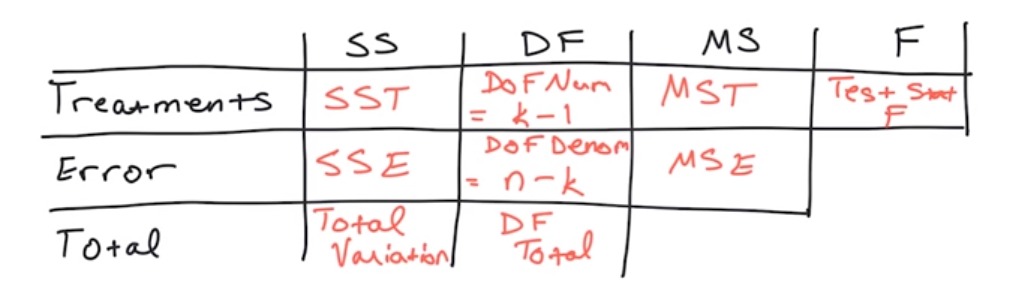 SS DF MS F
Treatments SST DoF Num = k-1 MST Test Stat F
Error SSE DoF Denom = n-k MSE
Total Total Variation DF Total